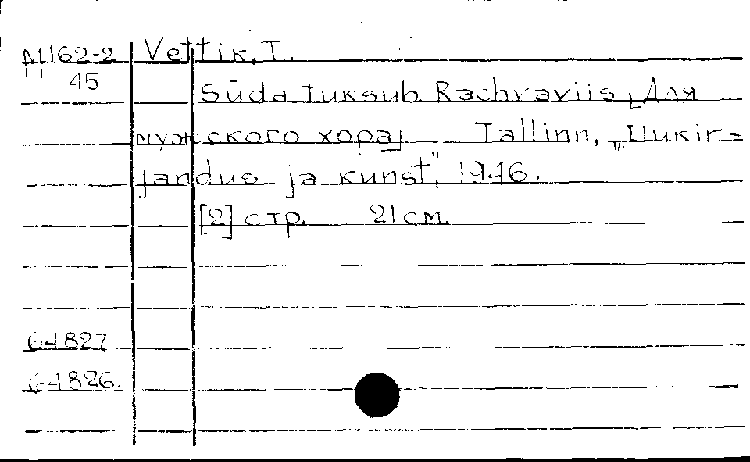 М162-2 Vettik, T.
45
Süda tuksub Rachvaviis [Для
мужского хора] Tallinn, „Ilukir-
jandus ja kunst", 1946.
[2] стр. 21 см.
64827
64826.